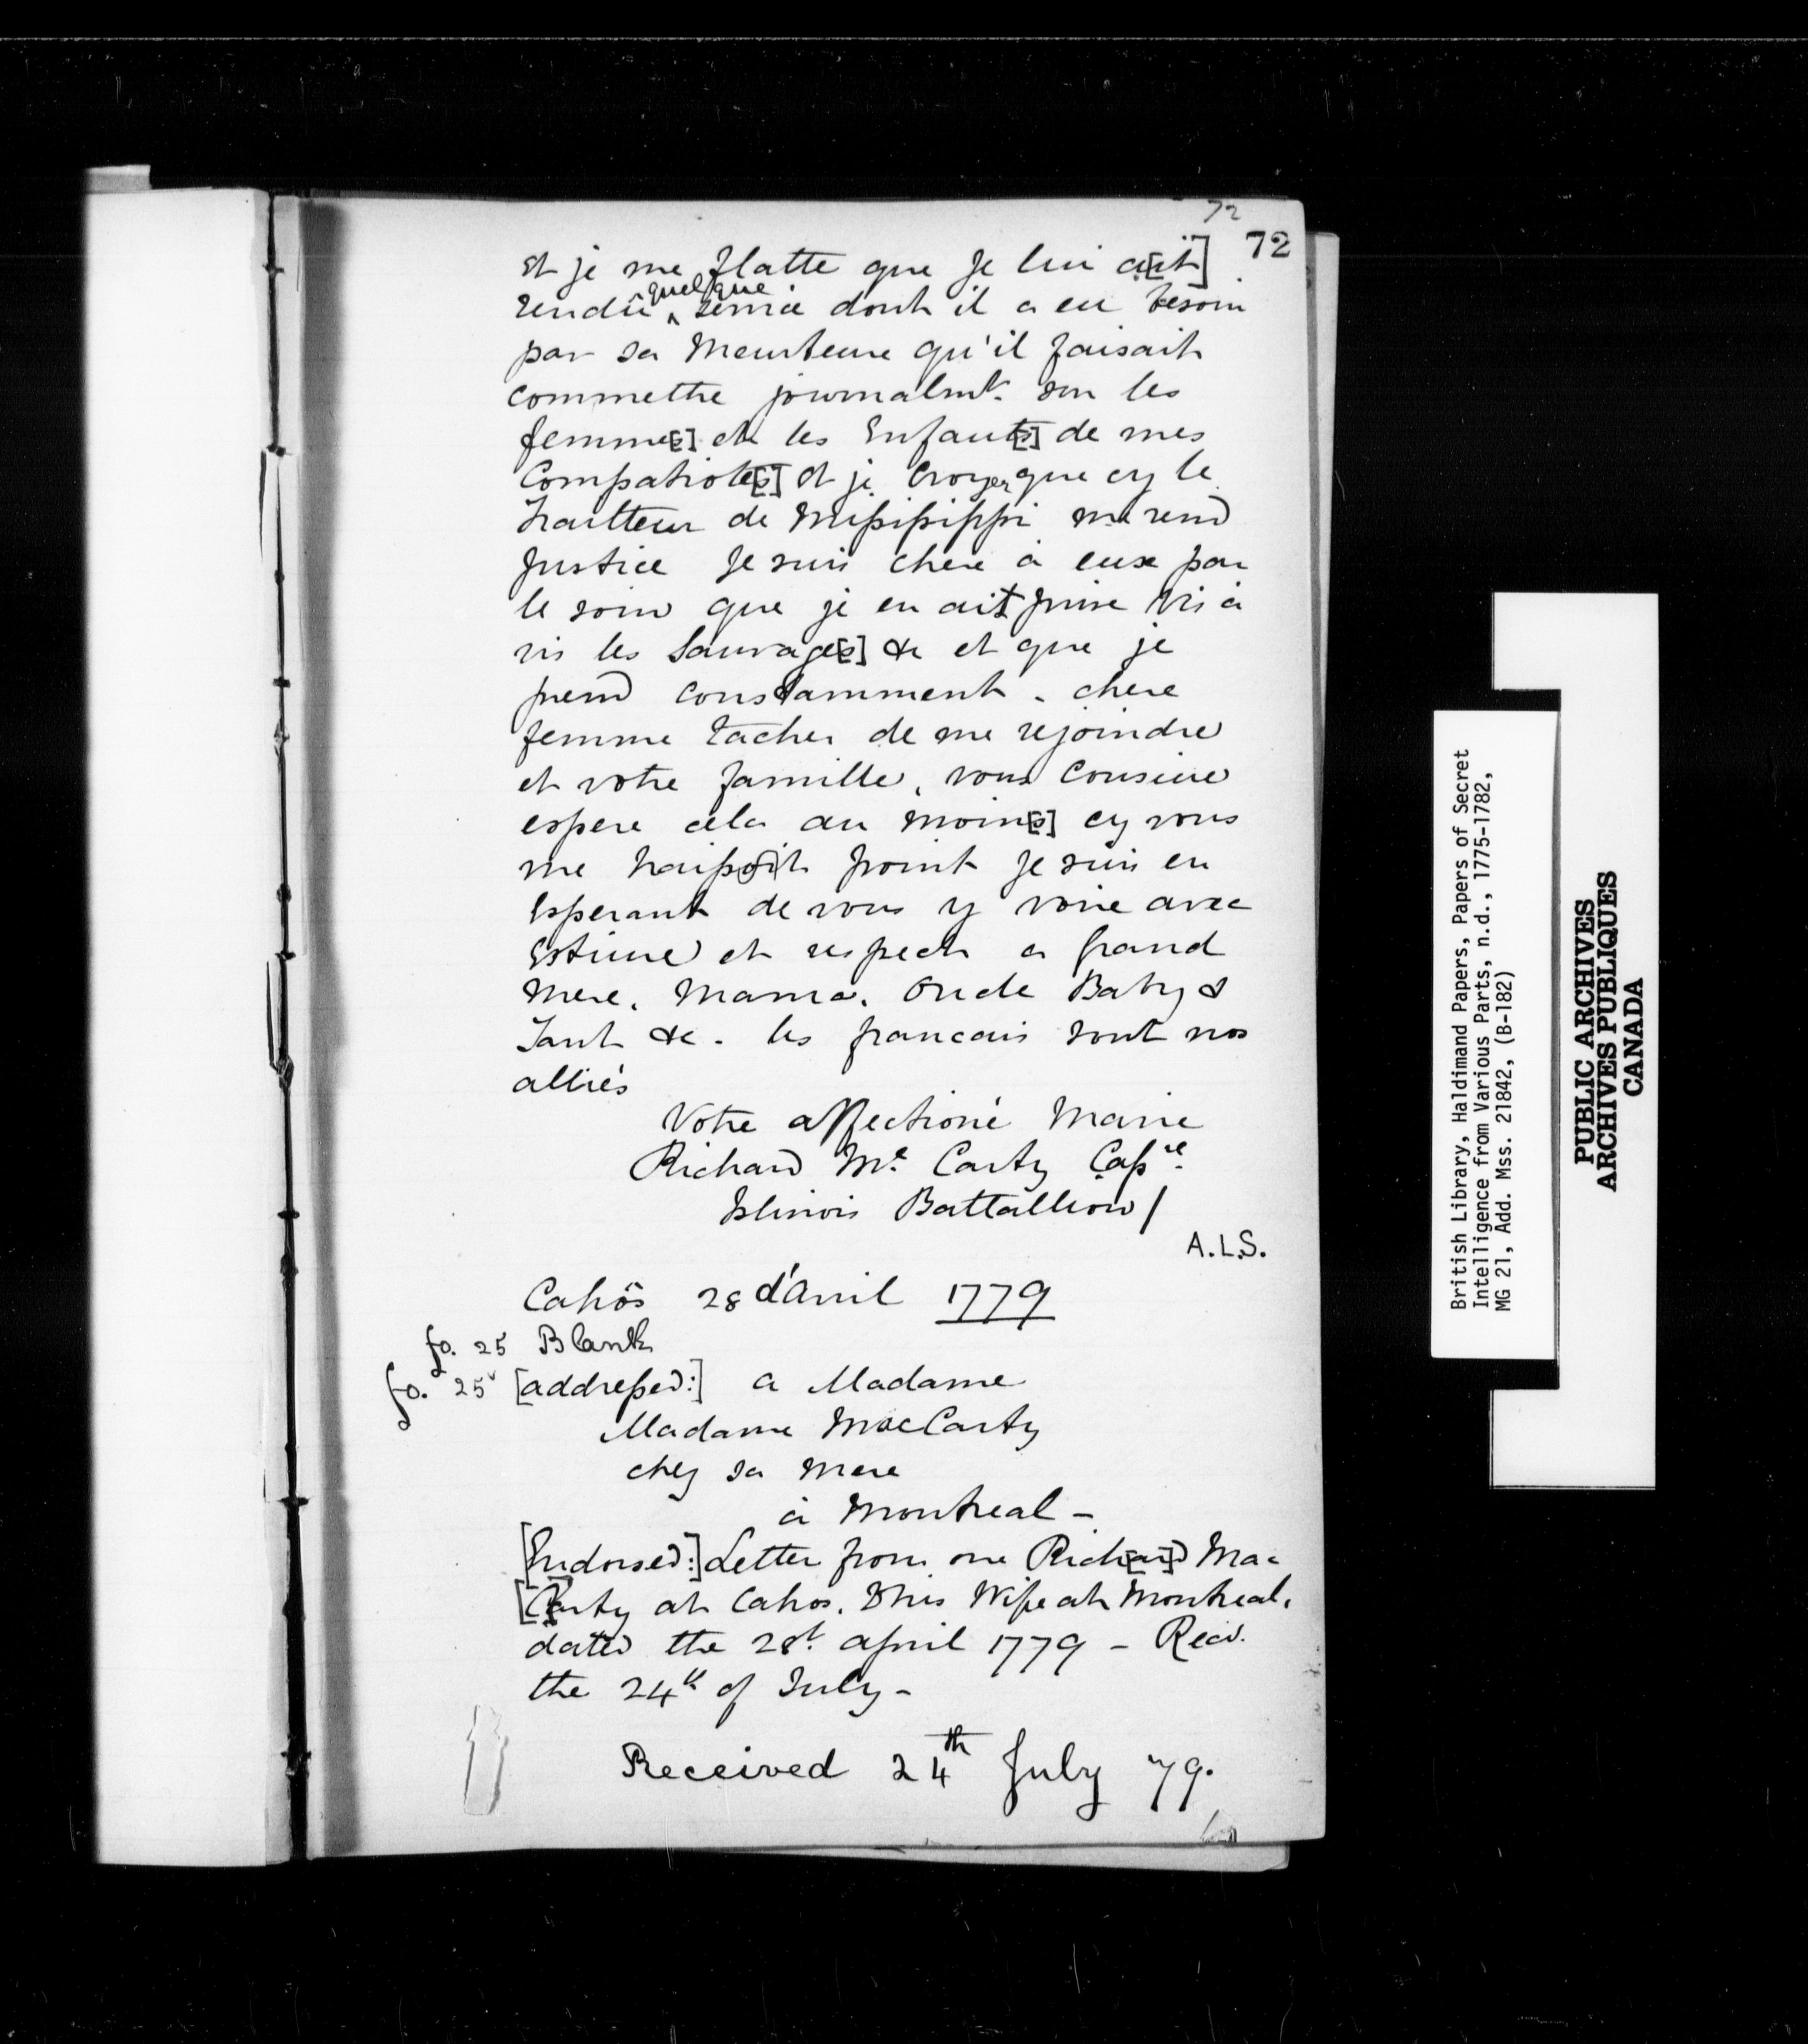 72
72
et je me flatte que Je lui a[it]
rendû quelque service dont il a eu besoin
par sa Meurteure qu'il faisait
commettre journalmt. sur les
femme[s] et les Enfant[s] de mes
Compatriote[s] et je croyer que cy le
Traitteur de Missisippi me rend
Justice Je suis chere à euse par
le soin que je en ait prise vis à
vis les Sauvage[s] &c et que je
prend constamment - chere
femme tacher de me rejoindre
et votre famille, vous cousine
espere cela au moin[s] cy vous
me haissoit point Je suis en
Esperant de vous y voire avec
Estime et respect a grand
Mere, Mama, Oncle Baby &
Tant &c. les francais sont nos
alliés
Votre affectioné Marie
Richard Mc. Carty Capne.
Islinois Battallion/
A.L.S.
Cahôs 28 d'avril 1779
fo. 25 Blank
fo. 25v [addressed:] a Madame
Madame MacCarty
chez sa mere
à Montreal -
[Endorsed:] Letter from one Rich[ar]d Mac
[C]arty at Cahos, to his Wife at Montreal,
dated the 28t. april 1779 - Recd.
the 24th of July -
Received 24th July 79.
British Library, Haldimand Papers, Papers of Secret
Intelligence from Various Parts, n.d., 1775-1782,
MG 21, Add. Mss. 21842, (B-182)
PUBLIC ARCHIVES
ARCHIVES PUBLIQUES
CANADA